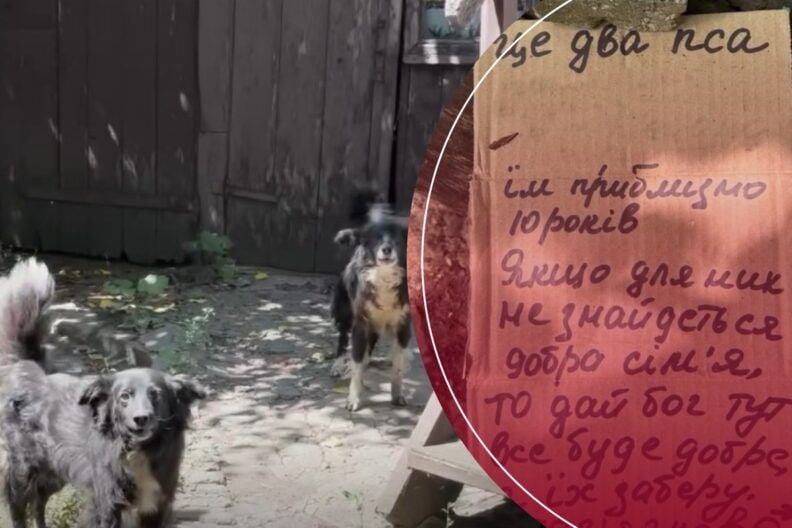 це два пса
їм приблизно
10 років
Якщо для них
не знайдеться
добра сім'я,
то дай бог тут
все буде добре,
їх заберу.